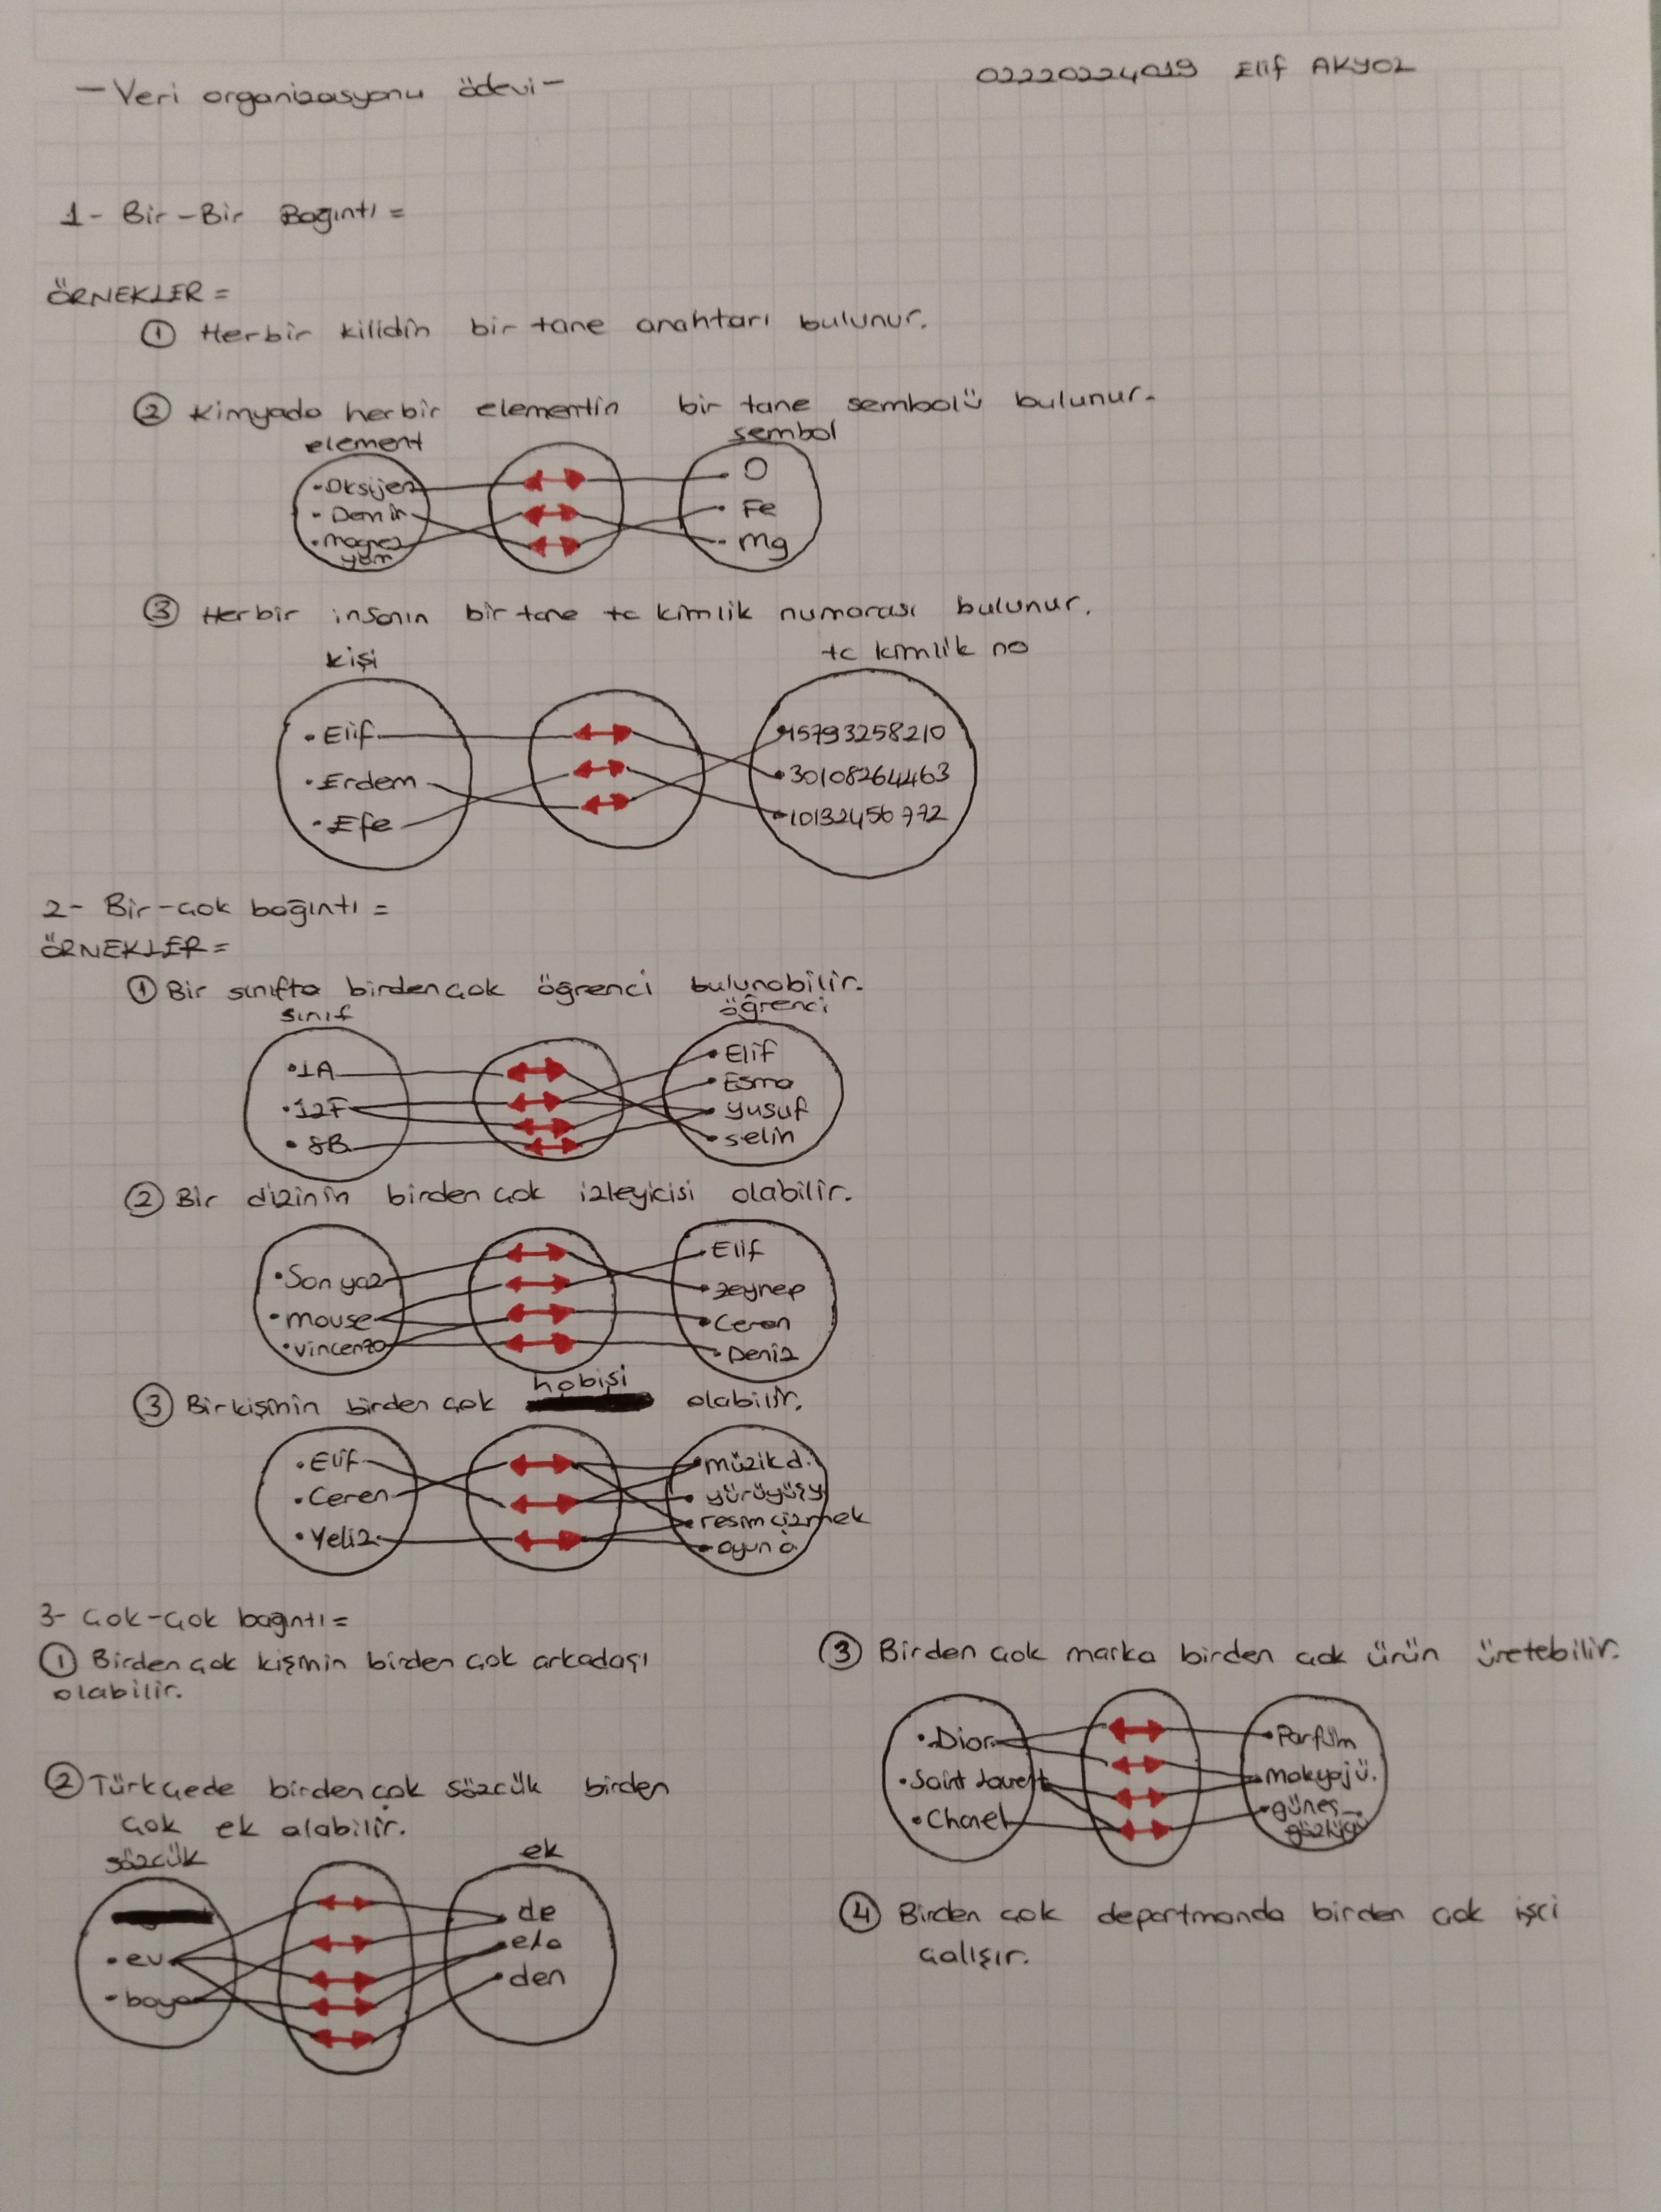 -Veri organizasyonu ödevi-
02220224019 Elif AKYOL
1- Bir-Bir Bağıntı =
ÖRNEKLER =
① Herbir kilidin bir tane anahtarı bulunur.
② Kimyada herbir elementin bir tane sembolü bulunur.
element sembol
•Oksijen O
•Demir •Fe
•magnez •Mg
yum
③ Herbir insanın bir tane tc kimlik numarası bulunur.
kişi tc kimlik no
•Elif •15793258210
•Erdem •30108264463
•Efe •10132456772
2- Bir-çok bağıntı =
ÖRNEKLER =
① Bir sınıfta birden çok öğrenci bulunabilir.
sınıf öğrenci
•1A •Elif
•12F •Esma
•8B •yusuf
•selin
② Bir dizinin birden çok izleyicisi olabilir.
•Son yaz •Elif
•mouse •zeynep
•vincenzo •Ceren
•Deniz
③ Bir kişinin birden çok hobisi olabilir.
•Elif •müzik d.
•Ceren •yürüyüş y.
•Yeliz •resim çizmek
•oyun o.
3- çok-çok bağıntı =
① Birden çok kişinin birden çok arkadaşı
olabilir.
② Türkçede birden çok sözcük birden
çok ek alabilir.
sözcük ek
•ev •de
•boya •e/a
•den
③ Birden çok marka birden çok ürün üretebilir.
•Dior •Parfüm
•Saint laurent •makyaj ü.
•Chanel •güneş
gözlüğü
④ Birden çok departmanda birden çok işçi
çalışır.